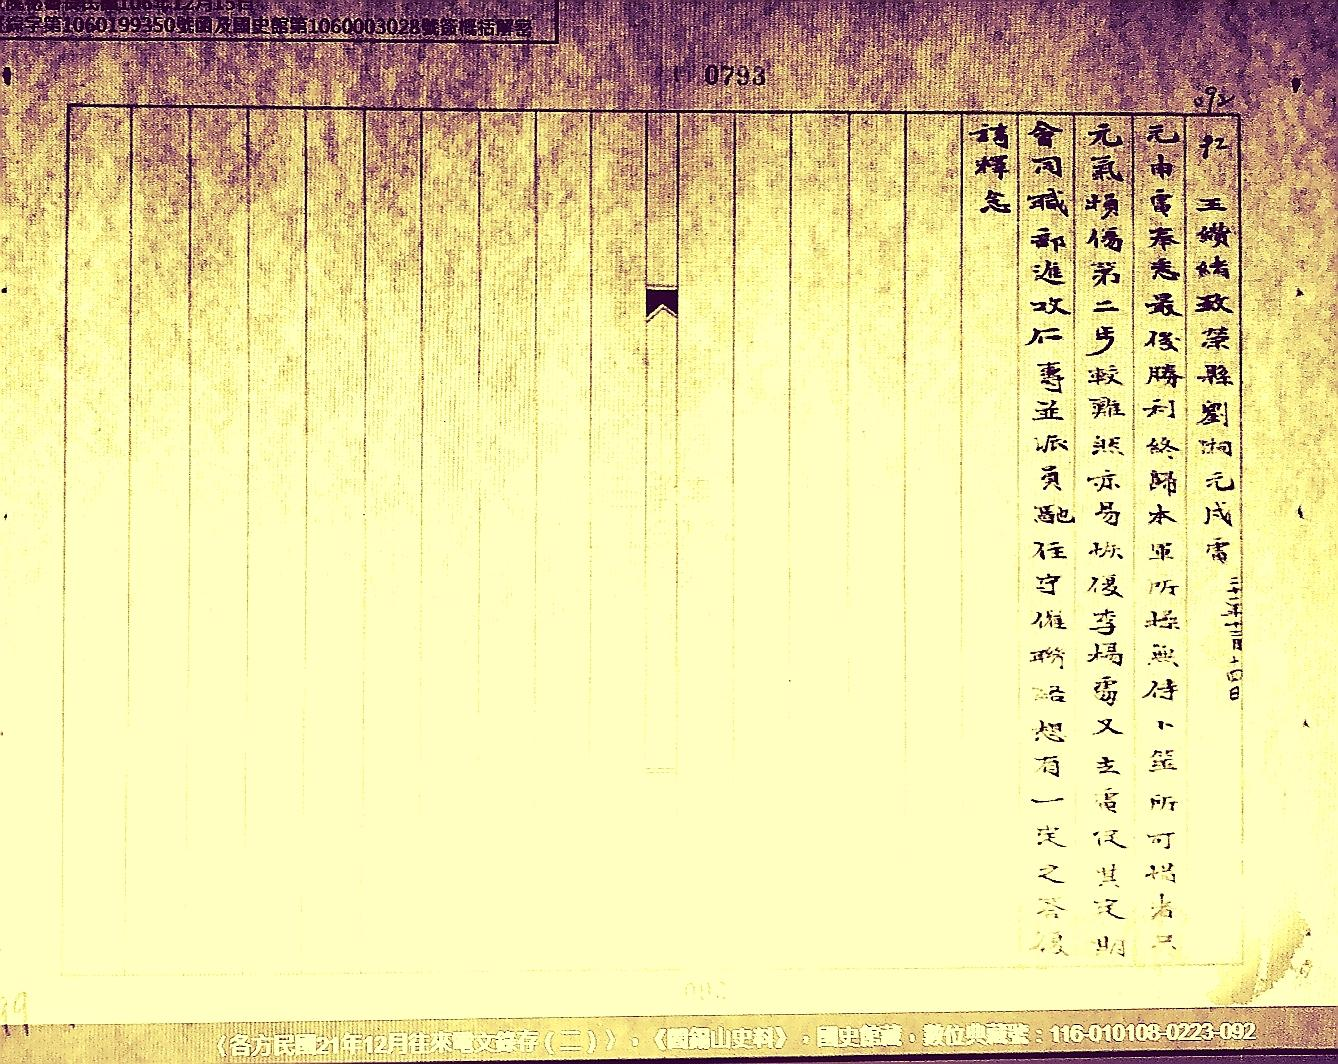 綜字第1060199350號函及國史館第1060003028號簽概括解密
0793
092
王纘緒致榮縣劉湘元戌電 二十一年十二月十四日
元申電奉悉最後勝利終歸本軍所操無待卜筮所可惜者只
元氣損傷第二步較難然亦易恢復李楊當又去電促其定期
會同職部進攻仁壽並派員馳往守催聯絡想有一定之答復
請釋念
《各方民國21年12月往來電文錄存（二）》，《閻錫山史料》，國史館藏，數位典藏號：116-010108-0223-092